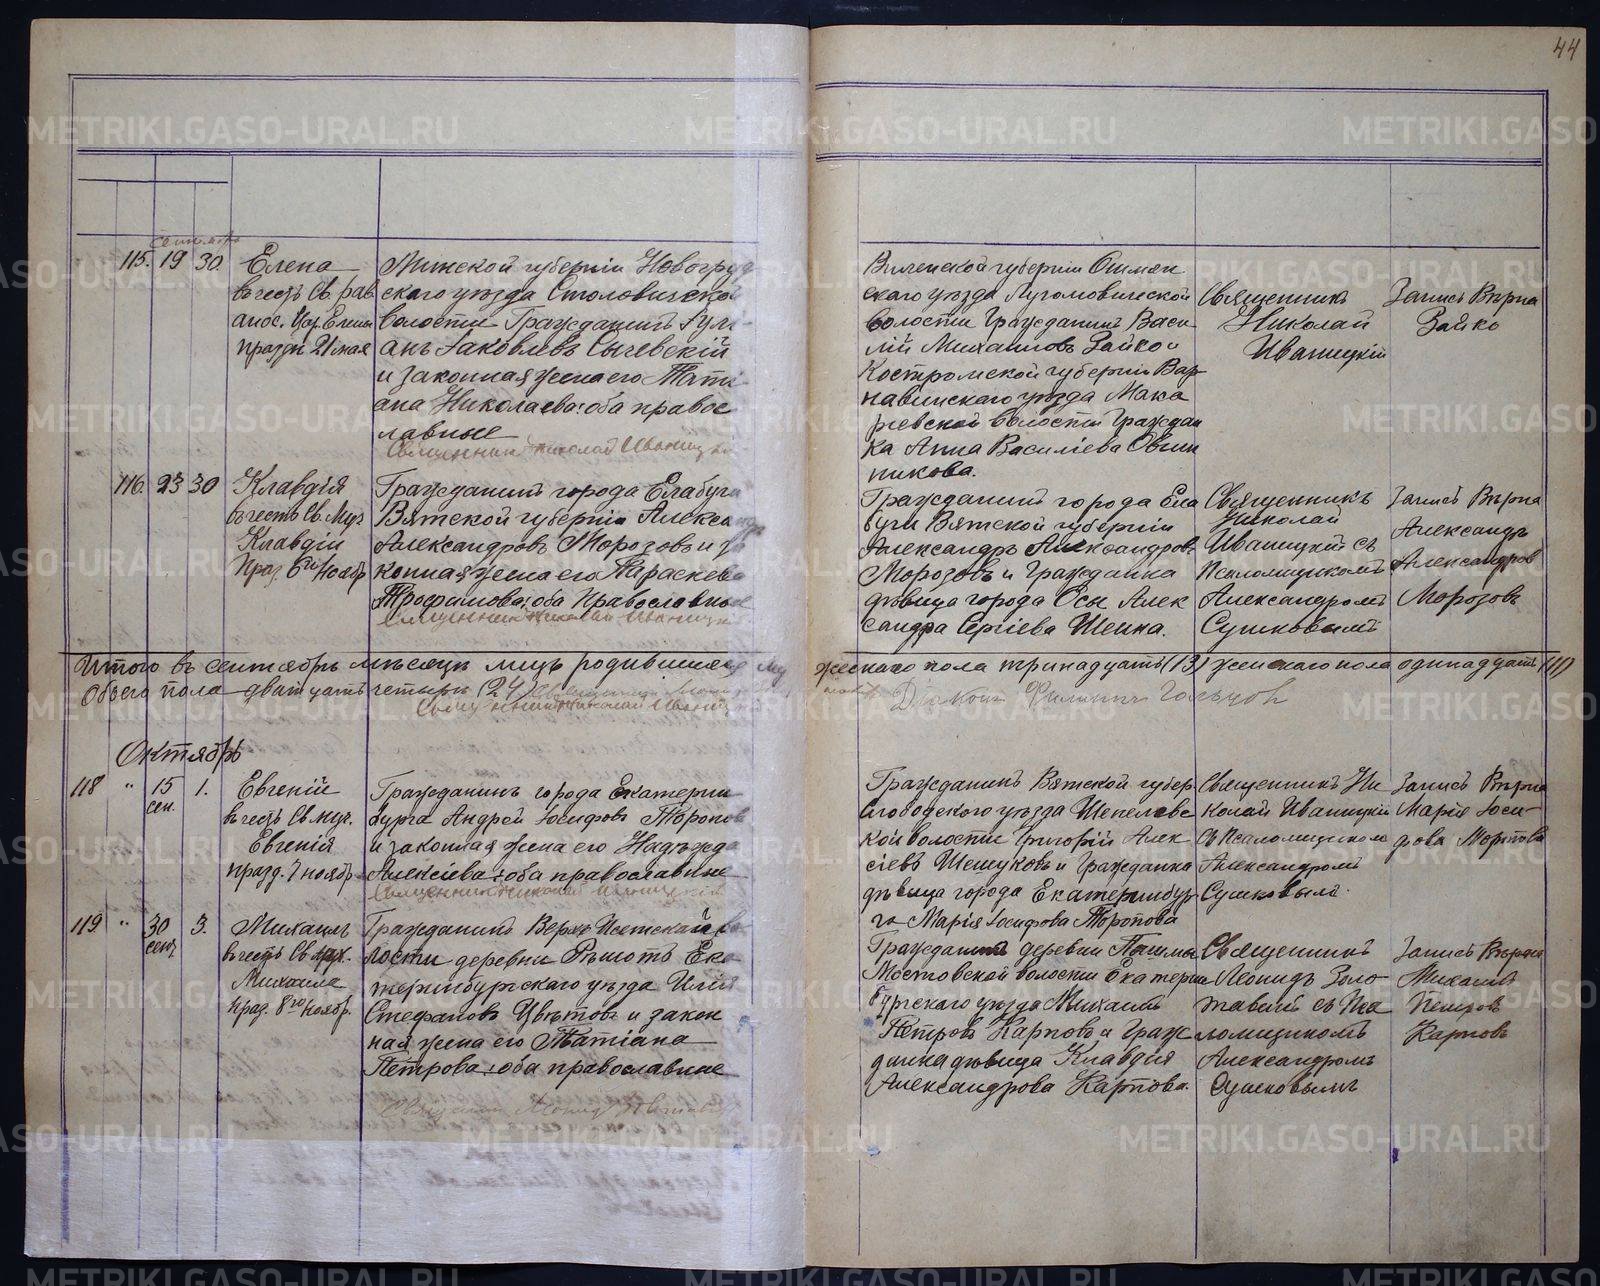 44
сентябрь
115. 19 30.
Елена
въ честь Св. рав
апос. Цар. Елены
празд 21 мая
Минской губернiи Новогруд
скаго уѣзда Столовичской
волости Гражданинъ Юлi
анъ Iаковлевъ Сычевскiй
и законная жена его Татi
ана Николаева: оба правос
лавные
Священникъ Николай Иваницкiй
Виленской губернiи Ошмян
скаго уѣзда Лугомовической
волости Гражданинъ Васи
лiй Михаиловъ Зайко и
Костромской губернiи Вар
навинскаго уѣзда Мака
рьевской волости Граждан
ка Анна Василiева Овчин
никова.
Священникъ
Николай
Иваницкiй
Запись Вѣрна
Зайко
116. 23 30
Клавдiя
въ честь Св. Муч
Клавдiи
Праз. 6го Ноябр
Гражданинъ города Елабуги
Вятской губернiи Алекса
Александровъ Морозовъ и за
конная жена его Параскева
Трофимова: оба Православные
Священникъ Николай Иваницкiй
Гражданинъ города Ела
буги Вятской губернiи
Александръ Александровъ
Морозовъ и Гражданка
дѣвица города Осы Алек
сандра Сергiева Шеина.
Священникъ
Николай
Иваницкiй съ
Псаломщикомъ
Александромъ
Сушковымъ
Запись Вѣрна
Александръ
Александров
Морозовъ
Итого въ сентябрѣ мѣсяцѣ лицъ родившихся му жескаго пола тринадцать (13) женскаго пола одинадцать (11)
Обоего пола двадцать четыре (24)
Священникъ Николай Иваницкiй
Дiаконъ Филиппъ Гальцов
Октябрь
118 " 15 сен. 1.
Евгенiй
въ честь Св. муч.
Евгенiя
празд. 7 ноябр
Гражданинъ города Екатерин
бурга Андрей Iосифовъ Торопов
и законная жена его Надежда
Алексiева: оба православные
Священникъ Николай Иваницкiй
Гражданинъ Вятской губер
Слободскаго уѣзда Шепелевс
кой волости Григорiй Алек
сiевъ Шешуковъ и Гражданка
дѣвица города Екатеринбур
га Марiя Iосифова Торопова
Священникъ Ни
колай Иваницкiй
съ Псаломщикомъ
Александромъ
Сушковымъ.
Запись Вѣрна
Марiя Iоси
фова Торопова
119 " 30 сент 3.
Михаилъ
въ честь Св. Арх.
Михаила
праз. 8го Ноябр.
Гражданинъ Верхъ Исетской во
лости деревни Рѣшотъ Ека
теринбургскаго уѣзда Илiя
Стефановъ Цвѣтовъ и закон
ная жена его Татiана
Петрова: оба православные
Гражданинъ деревни Пашма
Мостовской волости Екатерин
бургскаго уѣзда Михаилъ
Петровъ Карповъ и Граж
данка дѣвица Клавдiя
Александрова Карпова.
Священникъ
Леонидъ Золо
тавинъ съ Пса
ломщикомъ
Александромъ
Сушковымъ
Запись Вѣрна
Михаилъ
Петровъ
Карповъ
METRIKI.GASO-URAL.RU